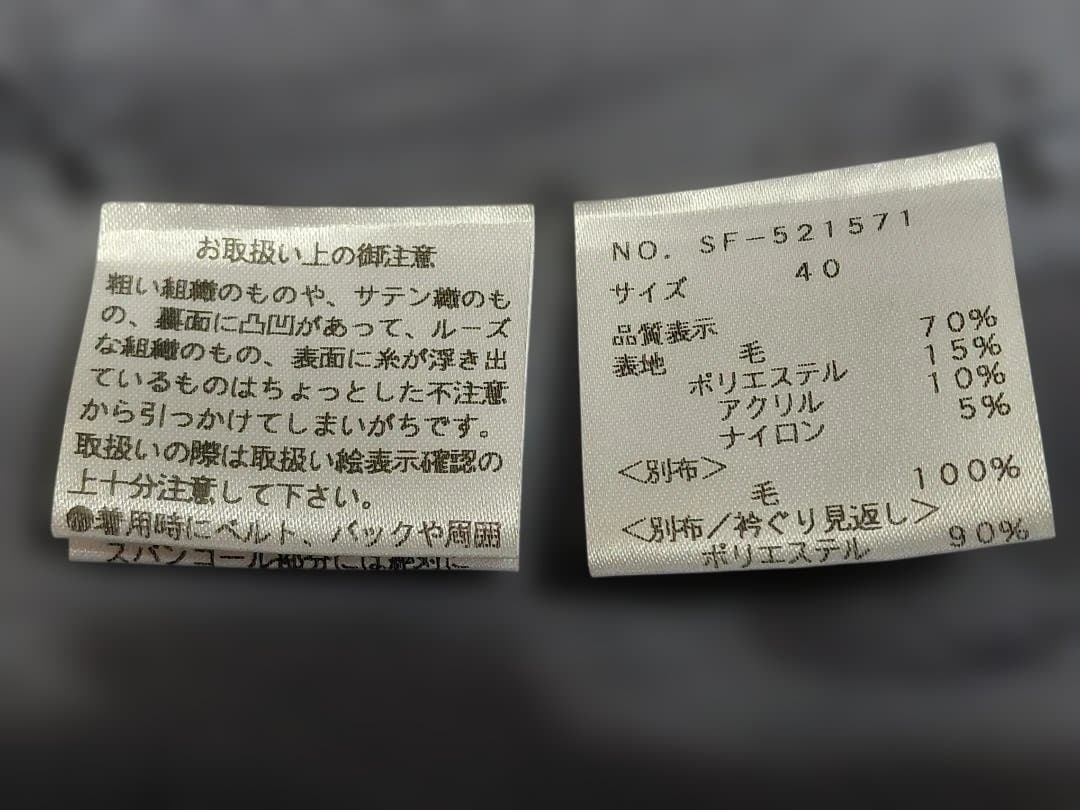 お取扱い上の御注意
粗い組織のものや、サテン織のも
の、裏面に凸凹があって、ルーズ
な組織のもの、表面に糸が浮き出
ているものはちょっとした不注意
から引つかけてしまいがちです。
取扱いの際は取扱い絵表示確認の
上十分注意して下さい。
着用時にベルト、バックや
スパンコール部分には絶対に
NO. SF-521571
サイズ 40
品質表示
表地 毛 70%
ポリエステル 15%
アクリル 10%
ナイロン 5%
<別布>
毛 100%
<別布/衿ぐり見返し>
ポリエステル 90%